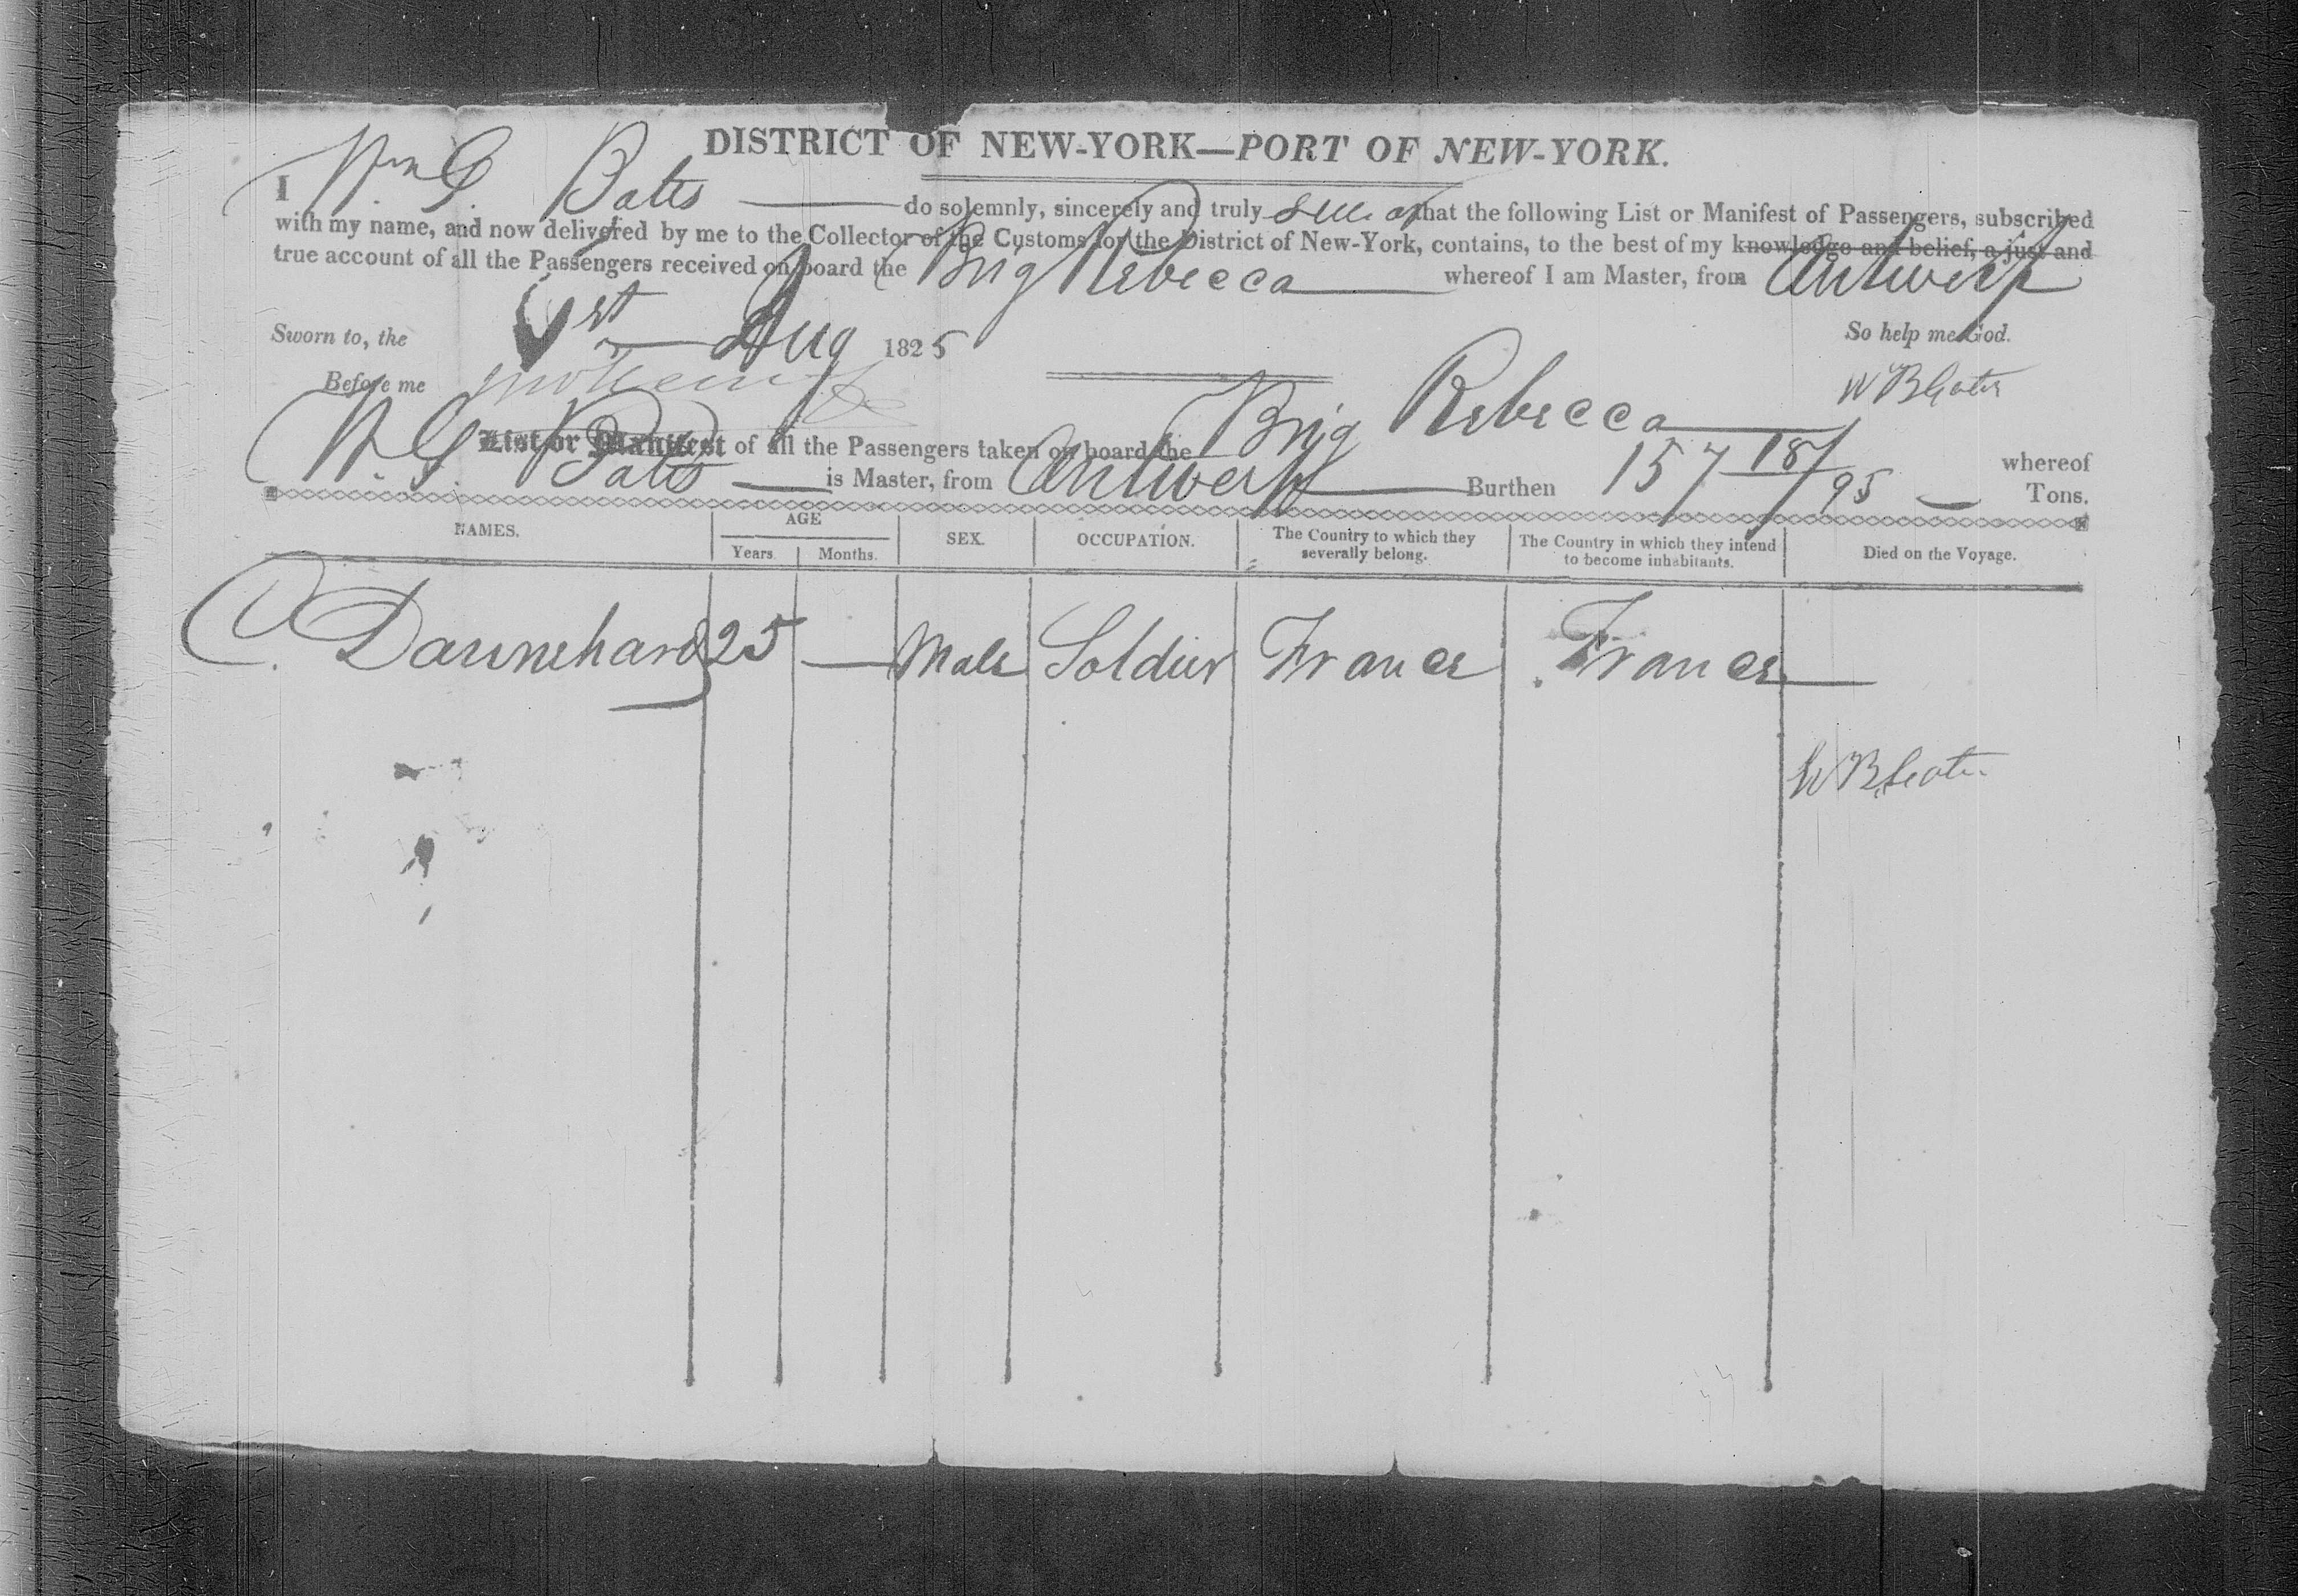 DISTRICT OF NEW-YORK—PORT OF NEW-YORK.
I Wm G. Bates do solemnly, sincerely and truly swear that the following List or Manifest of Passengers, subscribed
with my name, and now delivered by me to the Collector of the Customs for the District of New-York, contains, to the best of my knowledge and belief, a just and
true account of all the Passengers received on board the Brig Rebecca whereof I am Master, from Antwerp
Sworn to, the 1st Aug 1825 So help me God.
Before me
List or Manifest of all the Passengers taken on board the Brig Rebecca whereof
W. G. Bates is Master, from Antwerp Burthen 157 18/95 Tons.
NAMES. AGE SEX. OCCUPATION. The Country to which they severally belong. The Country in which they intend to become inhabitants. Died on the Voyage.
Years. Months.
25 — Male Soldier France France —